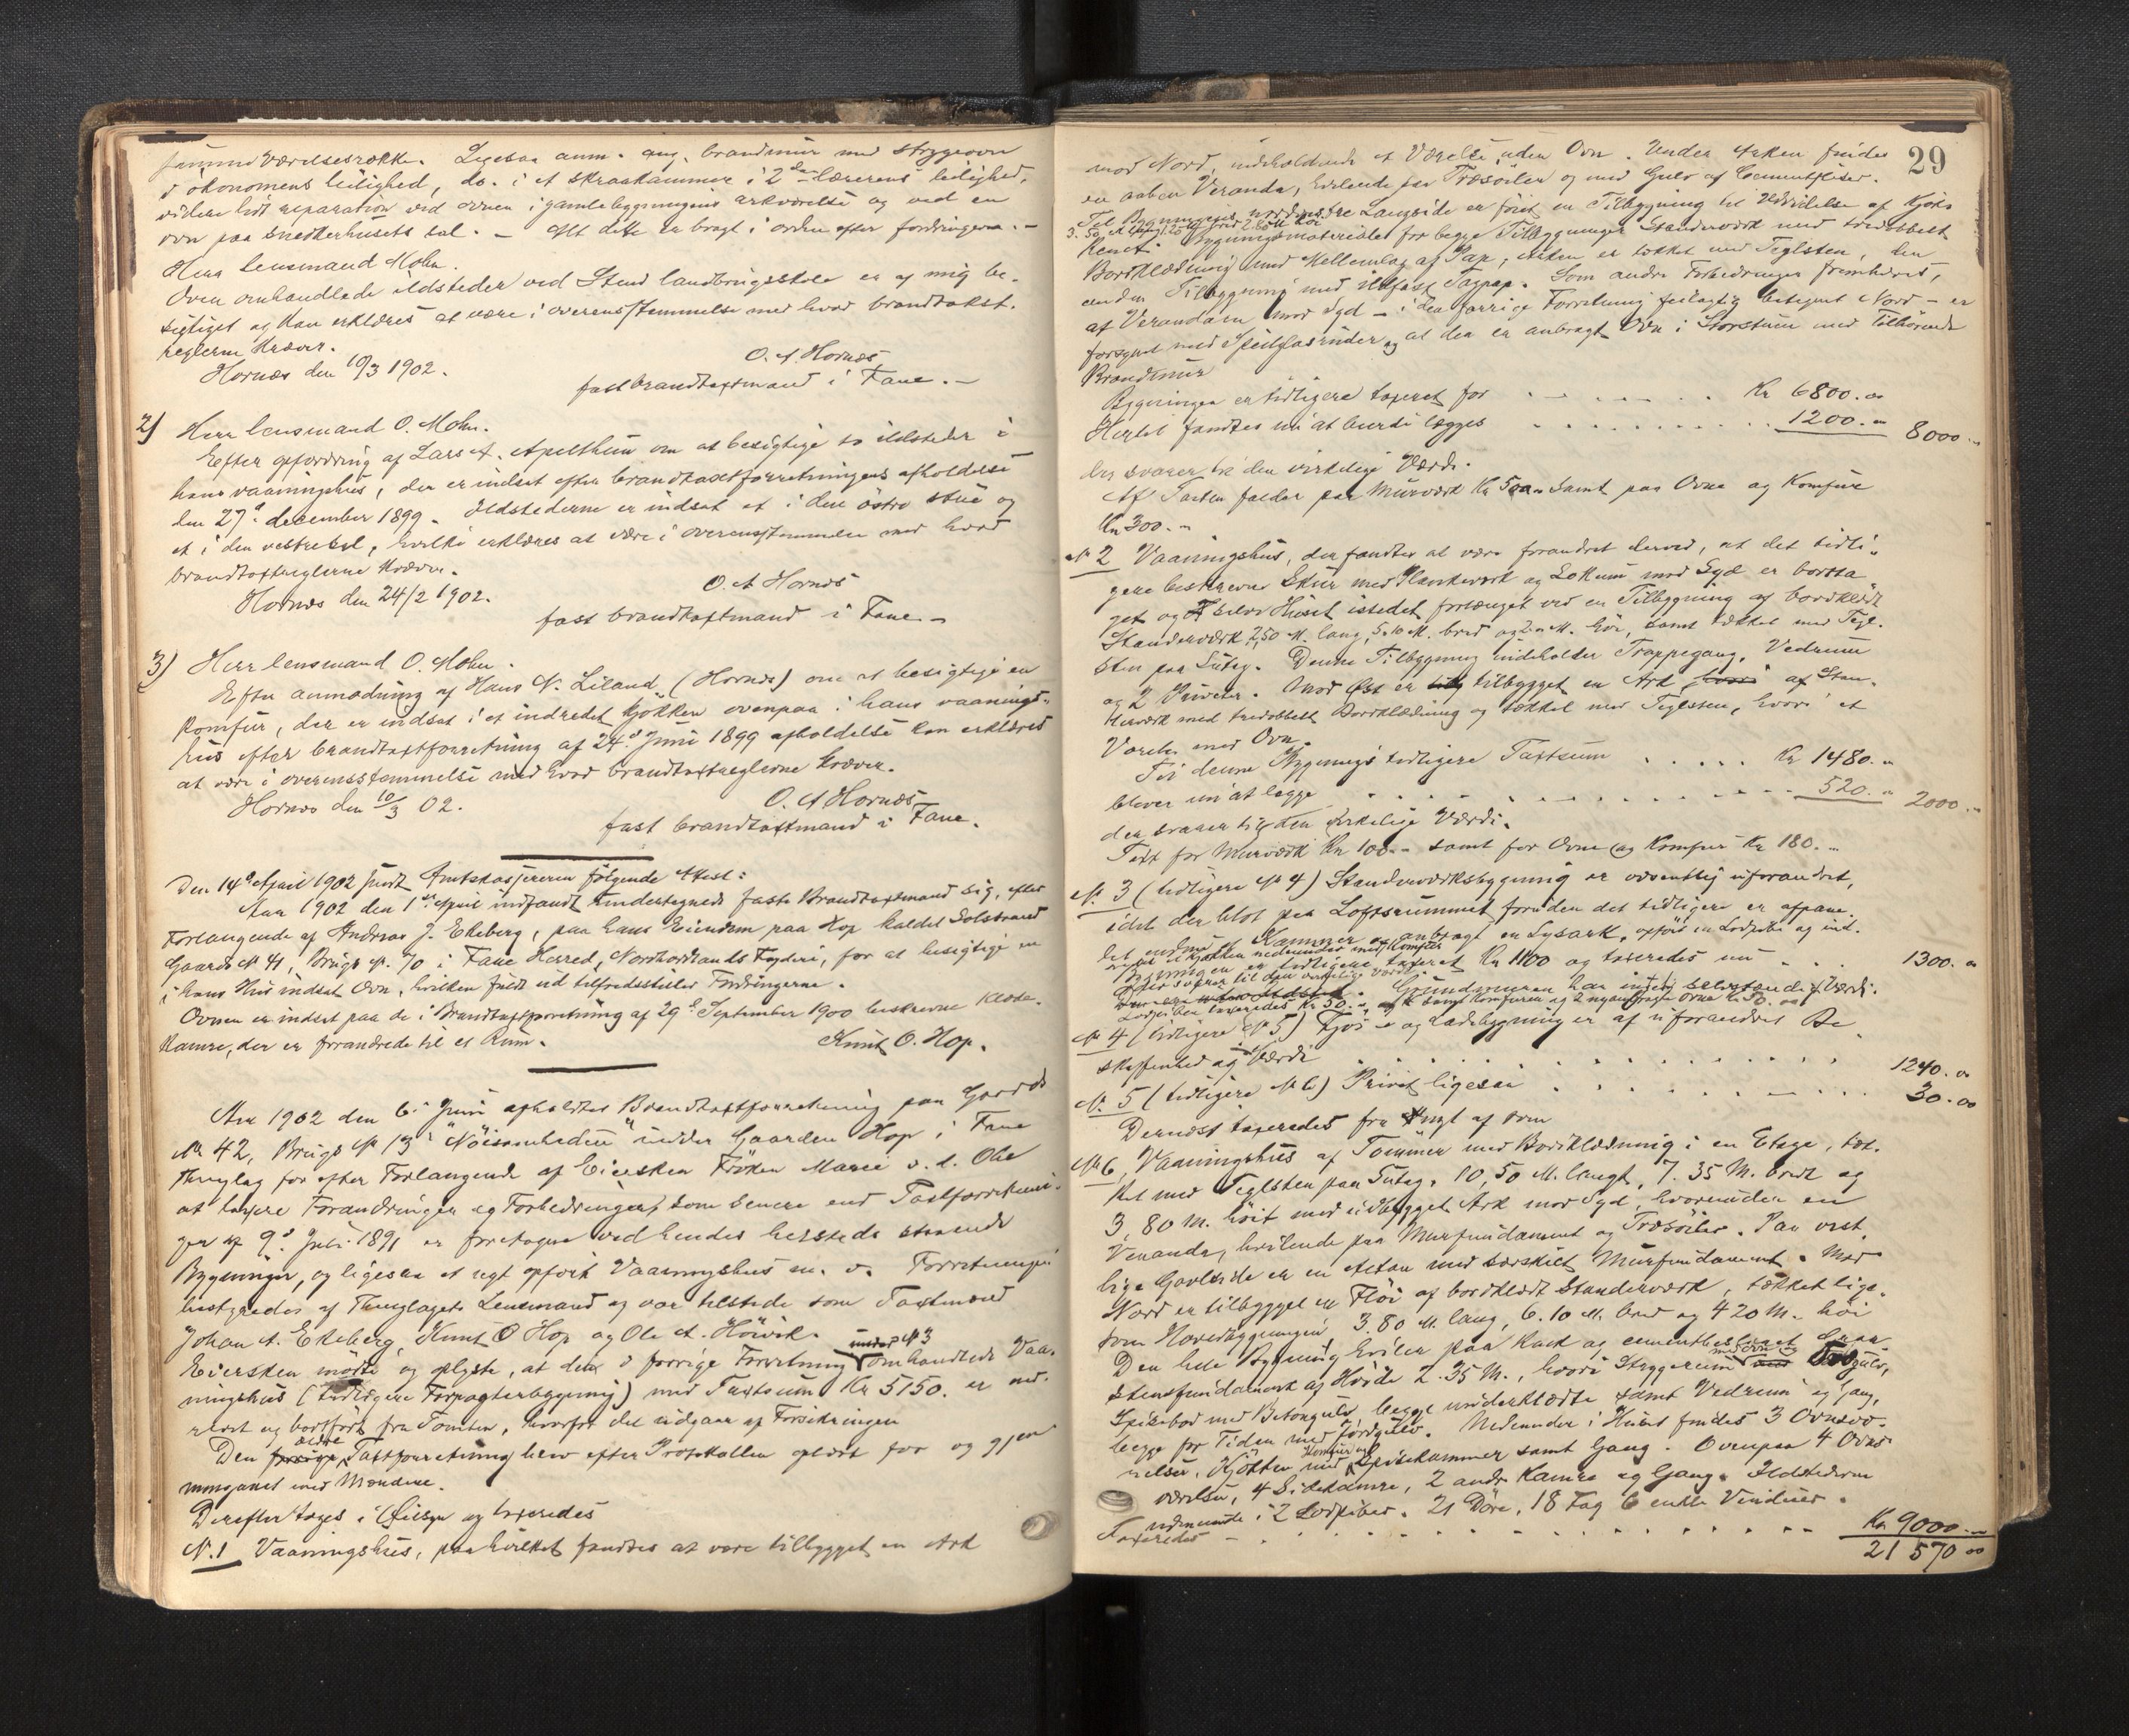 værelsesrække. Ligesaa anm. ang. brandmur med strygeovn
i økonomens leilighed, do. i et skraakammer i 2den lærerens leilighed,
videre lidt reparation ved ovnen i gamlebygningens arkværelse og ved en
ovn paa snedkerhusets sal. – Alt dette er bragt i orden efter fordringerne. –
Herr Lensmand Mohn.
Oven omhandlede ildsteder ved Stend landbrugsskole er af mig be-
sigtiget og kan erklæres at være i overensstemmelse med hvad brandtakst-
reglerne kræver.
Hornæs den 10/3 1902.
O. A. Hornæs
fast brandtaxtmand i Fane. –
2) Herr lensmand O. Mohn.
Efter opfordring af Lars A. Apelthun om at besigtige to ildsteder i
hans vaaningshus, der er indsat efter brandtaxtforretningens afholdelse
den 27d december 1899. Ildstederne er indsat et i den østre stue og
et i den vestre , hvilke erklæres at være i overensstemmelse med hvad
brandtaxtreglerne kræver.
Hornæs den 24/2 1902.
O. A Hornæs
fast brandtaxtmand i Fane –
3) Herr lensmand O. Mohn.
Efter anmodning af Hans N. Liland (Hornæs) om at besigtige en
komfur, der er indsat i et indredet kjøkken ovenpaa i hans vaanings-
hus efter brandtaxtforretning af 24d Juni 1899 afholdelse kan erklæres
at være i overensstemmelse med hvad brandtaxtreglerne kræver.
Hornæs den 10/3 02.
O. A Hornæs
fast brandtaxtmand i Fane.
Den 14d April 1902 sendt Amtskasjereren følgende Attest:
Aar 1902 den 1ste April indfandt undertegnede faste Brandtaxtmand sig, efter
Forlangende af Andreas J. Ekeberg, paa hans Eiendom paa Hop kaldet Solstrand
Gaards № 41, Brugs № 70 i Fane Herred, Nordhordlands Fogderi, for at besigtige en
i hans Hus indsat Ovn, hvilken fandt ud tilfredsstiller Fordringerne.
Ovnen er indsat paa de i Brandtaxtforretning af 29d September 1900 beskrevne Klæde-
kamre, der er forandrede til et Rum.
Knut O. Hop.
Aar 1902 den 6. Juni afholdtes Brandtaxtforretning paa Gaards
№ 42, Brugs № 13 "Nöisomheden" under Gaarden Hop i Fane
Thinglag for efter Forlangende af Eiersken Frøken Marie v. d. Ohe
at taxere Forandringer og Forbedringer, som senere end Taxtforretnin-
gen af 9d Juli 1891 er foretagne ved hendes hersteds staaende
Bygninger, og ligesaa et nyt opført Vaaningshus m. v. Forretningen
bestyredes af Thinglagets Lensmand og var tilstede som Taxtmænd
Johan A. Ekeberg, Knut O Hop og Ole A. Høivik.
Eiersken mødte og oplyste, at det i forrige Forretning under № 3 omhandlede Vaa-
ningshus (tidligere Forpagterbygning) med Taxtsum Kr 5150. er ned-
revet og bortført fra Tomten, hvorfor det udgaar af Forsikringen
Den forrige ældre Taxtforretning blev efter Protokollen oplæst for og gjen
nemgaaet med Mændene.
Derefter toges i Øiesyn og taxeredes
N. 1 Vaaningshus, paa hvilket fandtes at være tilbygget en Ark
29
mod Nord, indeholdende et Værelse uden Ovn. Under Arken findes
en aaben Veranda, hvilende paa Træsøiler og med Gulv af Cementfliser.
Til Bygningens nordvestre Langside er føiet en Tilbygning til Udvidelse af Kjøk-
kenet. Bygningsmaterialet for begge Tilbygninger Standerværk med tredobbelt
Bordklædning med Mellemlag af Pap, Arken er tækket med Teglsten, den
anden Tilbygning med ildfast Tagpap. Som andre Forbedringer fremhæves,
at Verandaen mod Syd – i den forrige Forretning feilagtig betegnet Nord – er
forsynet med Speilglasruder og at der er anbragt Ovn i Storstuen med Tilhørende
Brandmur
Bygningen er tidligere taxeret for Kr 6800.00
Hertil fandtes nu at burde lægges 1200.00 8000.00
der svarer til den virkelige Værdi.
Af Taxten falder paa Murværk Kr 500.- samt paa Ovne og Komfur
Kr 300.-
№ 2 Vaaningshus, der fandtes at være forandret derved, at det tidli-
gere beskrevne Skur med Plankeværk og Lokum mod Syd er bortta
get og selve Huset istedet forlænget ved en Tilbygning af bordklædt
Standerværk, 2,50 M. lang, 5.10 M. bred og M. høi, samt tækket med Tegl-
sten paa Sutag. Denne Tilbygning indeholder Trappegang, Vedrum
og 2 Priveter. Mod Øst er tilbygget en Ark af Stan-
derværk med tredobbelt Bordklædning og tækket med Teglsten, hvori et
Værelse med Ovn.
Til denne Bygnings tidligere Taxtsum Kr 1480.00
blever nu at lægge 520.00 2000.00
der svarer til den virkelige Værdi.
Taxt for Murværk Kr 100.- samt for Ovne og Komfur Kr 180.-
№. 3 (tidligere № 4) Standerværksbygning er væsentlig uforandret,
idet der blot paa Loftsrummet foruden det tidligere er afpane-
let endnu et Kammer og anbragt en Sysark, opført en Lodpibe og ind-
Bygningen er tidligere taxeret Kr 1100 og taxeredes nu 1300.00
. Grundmuren har intet selvstændigt Værdi.
№ 4 (tidligere № 5) Fjøs og Ladebygning er af uforandret Be
skaffenhed og Værdi 1240.00
№. 5 (tidligere № 6) Privet ligesaa 30.00
Dernæst taxeredes fra Nyt af som
№ 6, Vaaningshus af Tømmer med Bordklædning i en Etage, tæk-
ket med Teglsten paa Sutag. 10,50 M. langt, 7.35 M. bredt og
3,80 M. høit med udbygget Ark mod Syd, hvorunder en
Veranda, hvilende paa Murfundament og Træsøiler. Paa vest-
lige Gavlside er en Altan med særskilt Murfundament. Mod
Nord er tilbygget en Fløi af bordklædt Standerværk, tækket lige-
som Hovedbygningen 3.80 M. lang, 6.10 M. bred og 4 20 M. høi
Den hele Bygning hviler paa Kalk og cementbeslaget Graa-
stensfundament af Høide 2.35 M., hvori Strygerum med Trægulv,
Spisebod med Betongulv, begge underklædte samt Vedrum og Gang,
begge for Tiden med Jordgulv. Nedenunder i Huset findes 3 Ovnsvæ-
relser, Kjøkken med Komfur og Spisekammer samt Gang. Ovenpaa 4 Ovns-
værelser, 4 Sidekamre, 2 andre Kamre og Gang. Ildstederne
udmunde i 2 Lodpiber. 21 Døre, 18 Fag 6 enkle Vinduer.
Taxeredes Kr 9000.00
21 570 00